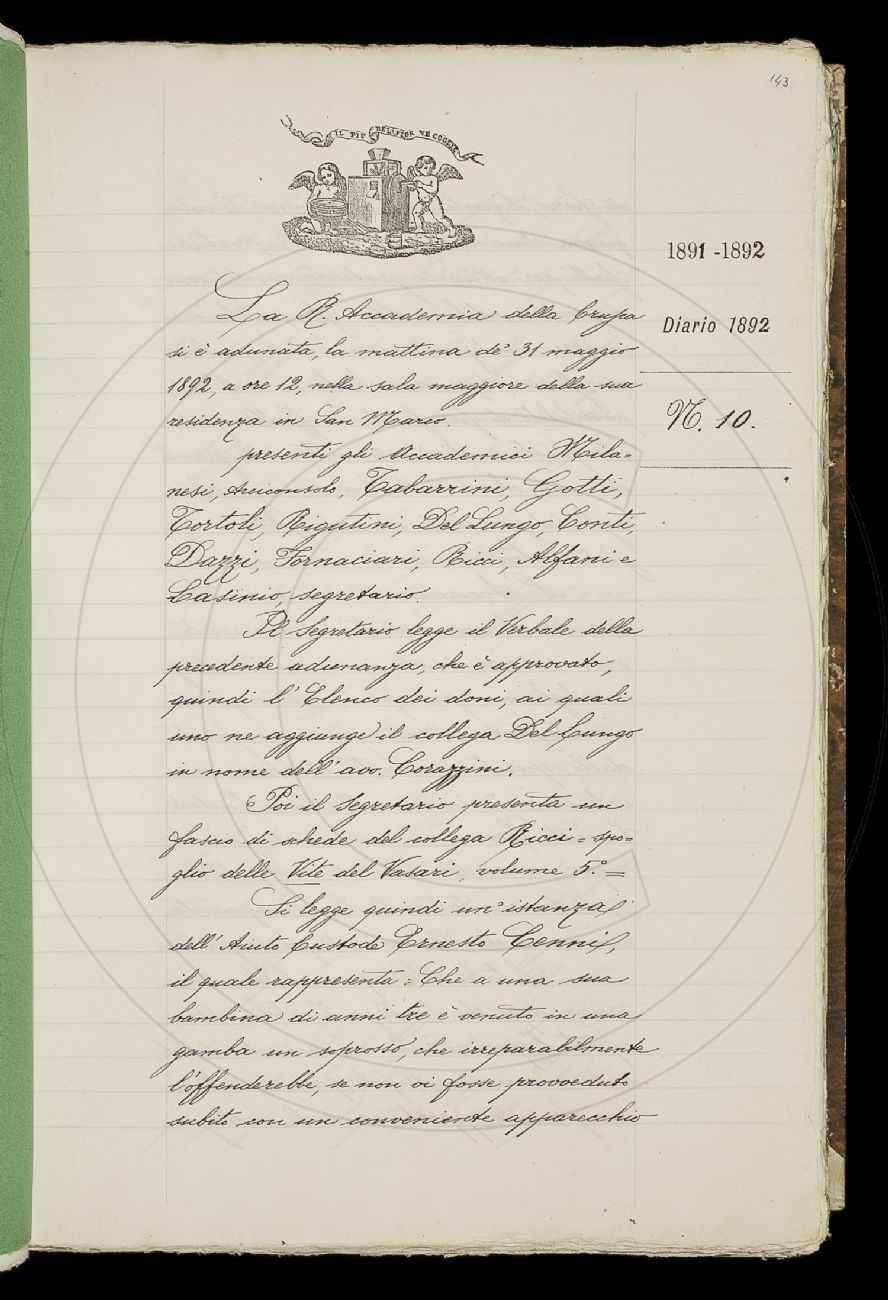 143
IL PIÙ BEL FIOR NE COGLIE
1891-1892
Diario 1892
N. 10.
La R. Accademia della Crusca
si è adunata, la mattina de' 31 maggio
1892, a ore 12, nella sala maggiore della sua
residenza in San Marco.
presenti gli Accademici Mila=
nesi, Arciconsolo, Tabarrini, Gotti,
Tortoli, Rigutini, Del Lungo, Conti,
Dazzi, Fornaciari, Ricci, Alfani e
Casini, segretario.
Il Segretario legge il Verbale della
precedente adunanza, che è approvato,
quindi l'Elenco dei doni, ai quali
uno ne aggiunge il collega Del Lungo
in nome dell'avv. Corazzini.
Poi il Segretario presenta un
fascio di schede del collega Ricci = spo=
glio delle Vite del Vasari, volume 5.° =
Si legge quindi un'istanza
dell'Aiuto Custode Ernesto Cenni,
il quale rappresenta: Che a una sua
bambina di anni tre è venuto in una
gamba un soprosso, che irreparabilmente
l'offenderebbe, se non vi fosse provveduto
subito con un conveniente apparecchio